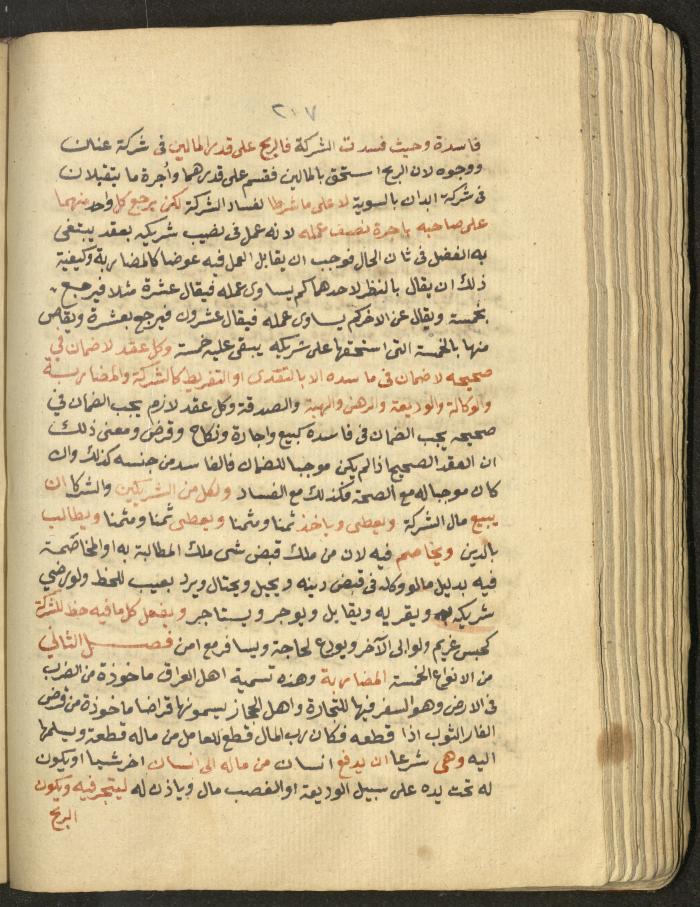 ٢١٧
فاسدة وحيث فسدت الشركة فالربح على قدر المالين في شركة عنان
ووجوه لان الربح استحق بالمالين فقسم على قدرهما وأجرة ما يتقبلان
في شركة ابدان بالسوية لا على ما شرطا لفساد الشركة لكن يرجع كل واحد منهما
على صاحبه باجرة نصف عمله لانه عمل في نصيب شريكه بعقد يبتغى
به الفضل في ثان الحال فوجب ان يقابل العمل فيه عوضا كالمضاربة وكيفية
ذلك ان يقال بالنظر لاحدهما كم يساوى عمله فيقال عشرة مثلا فيرجع
بخمسة ويقال عن الاخركم يساوى عمله فيقال عشرون فيرجع بعشرة ويقاص
منها بالخمسة التى استحقها على شريكه يبقى عليه خمسة وكل عقد لا ضمان في
صحيحه لا ضمان في فاسده الا بالتعدى او التفريط كالشركة والمضاربة
والوكالة والوديعة والرهن والهبة والصدقة وكل عقد لازم يجب الضمان في
صحيحه يجب الضمان في فاسده كبيع واجارة ونكاح وقرض ومعنى ذلك
ان العقد الصحيح اذا لم يكن موجبا للضمان فالفاسد من جنسه كذلك وان
كان موجبا له مع الصحة فكذلك مع الفساد ولكل من الشريكين والشركا ان
يبيع مال الشركة ويعطى وياخذ ثمنا ومثمنا ويعطى ثمنا ومثمنا ويطالب
بالدين ويخاصم فيه لان من ملك قبض شى ملك المطالبة به او المخاصمة
فيه بدليل ما لو وكله في قبض دينه ويحيل ويحتال ويرد بعيب للحظ ولو رضي
شريكه ويقر به ويقايل ويوجر ويستاجر ويفعل كل ما فيه حظ للشركة
كحبس غريم ولو ابى الآخر ويودع لحاجة ويسافر مع امن فصل الثاني
من الانواع الخمسة المضاربة وهذه تسمية اهل العراق ماخوذة من الضرب
في الارض وهو السفر فيها للتجارة واهل الحجاز يسمونها قراضا ماخوذة من قرض
الفار الثوب اذا قطعه فكان رب المال قطع للعامل من ماله قطعة ويسلمها
اليه وهى شرعا ان يدفع انسان من ماله الى انسان اخر شيا او يكون
له تحت يده على سبيل الوديعة او الغصب مال وياذن له ليتجر فيه ويكون
الربح